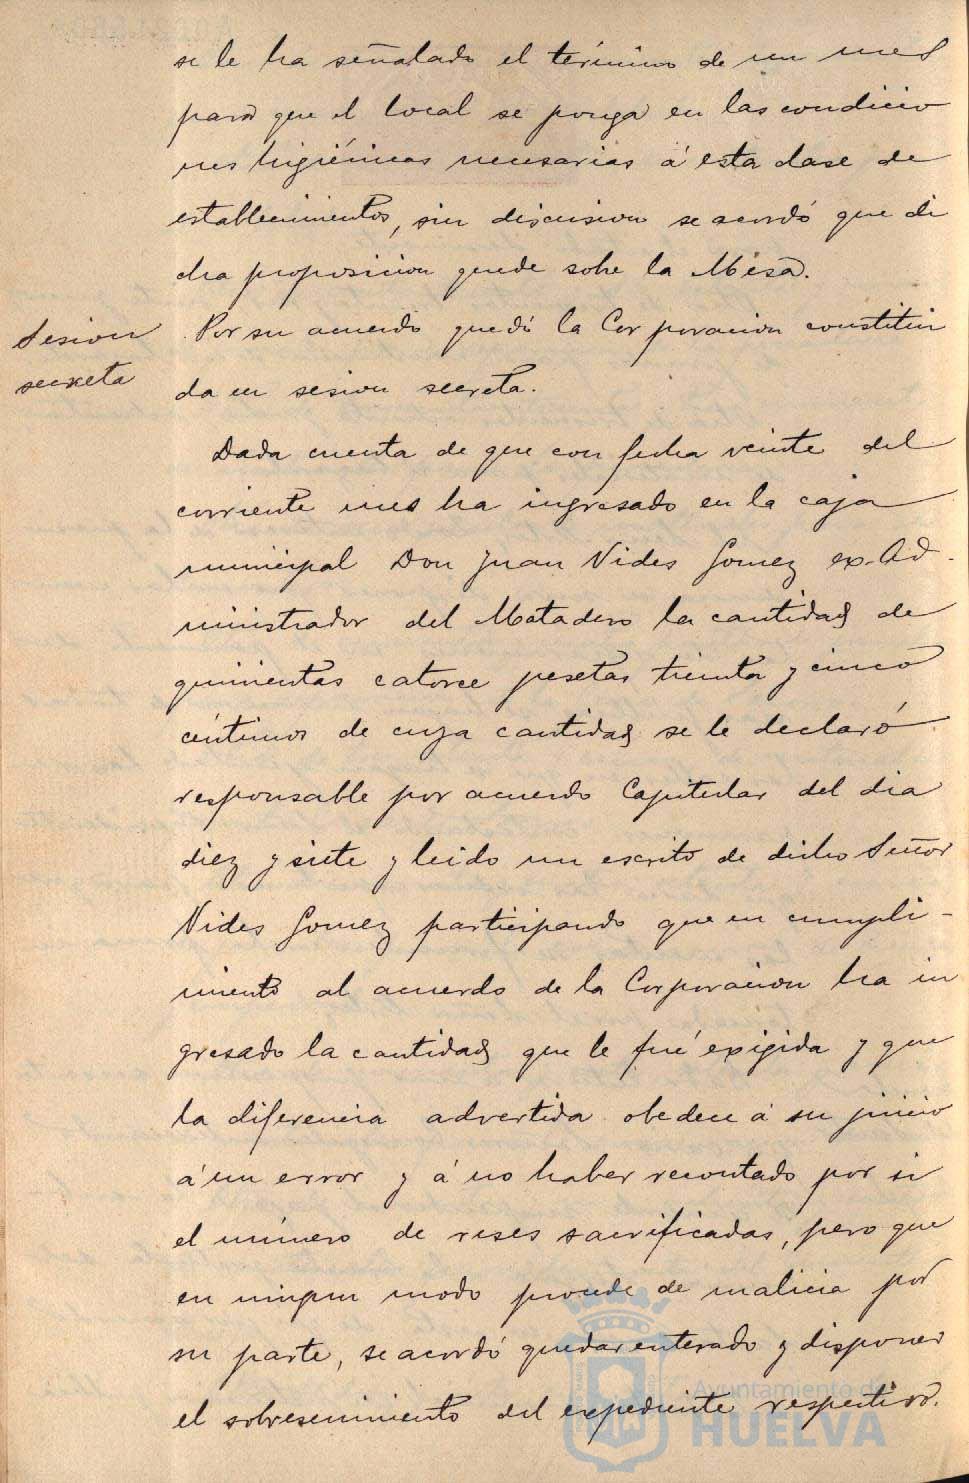 se le ha señalado el término de un mes
para que el local se ponga en las condicio
nes higiénicas necesarias á esta clase de
establecimientos, sin discusion se acordó que di
cha proposicion quede sobre la Mesa.
Sesion
secreta
Por su acuerdo quedó la Corporacion constitui
da en sesion secreta.
Dada cuenta de que con fecha veinte del
corriente mes ha ingresado en la caja
municipal Don Juan Vides Gomez ex-Ad-
ministrador del Matadero la cantidad de
quinientas catorce pesetas treinta y cinco
céntimos de cuya cantidad se le declaró
responsable por acuerdo Capitular del dia
diez y siete y leido un escrito de dicho Señor
Vides Gomez participando que en cumpli-
miento al acuerdo de la Corporacion ha in
gresado la cantidad que le fué exigida y que
la diferencia advertida obedece á su juicio
á un error y á no haber recontado por si
el número de reses sacrificadas, pero que
en ningun modo procede de malicia por
su parte, se acordó quedar enterado y disponer
el sobreseimiento del expediente respectivo.
Ayuntamiento de
HUELVA